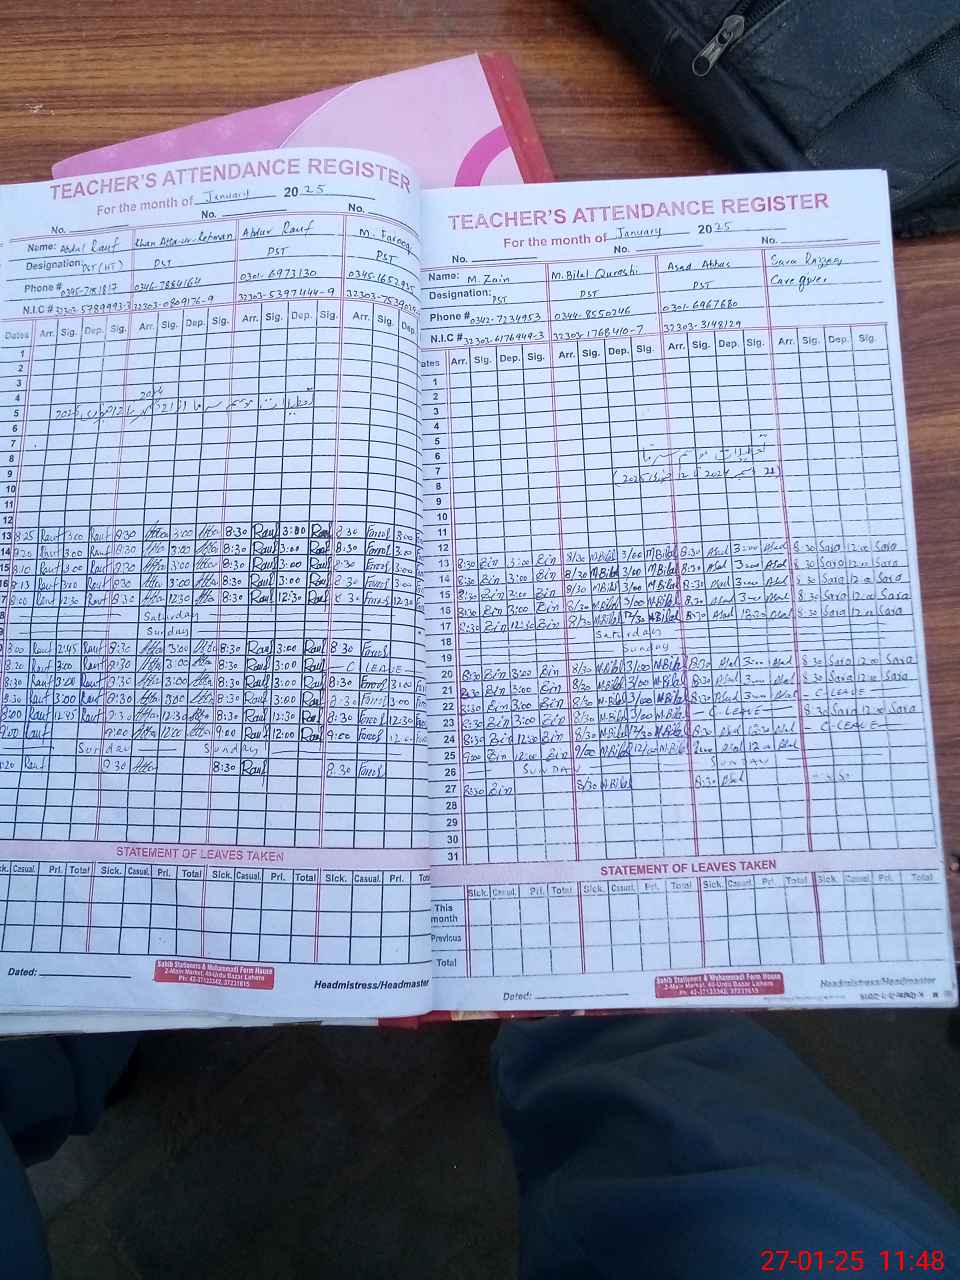 TEACHER'S ATTENDANCE REGISTER
For the month of January 2025
No. No. No.
Name: Abdul Rauf Khan Atta-ur-Rehman Abdur Rauf M. Farooq
Designation: PST (HT) PST PST PST
Phone # 0346-7884164 0301-6973130
N.I.C # 32303-5397144-9
Dates Arr. Sig. Dep. Sig. Arr. Sig. Dep. Sig. Arr. Sig. Dep. Sig. Arr. Sig. Dep.
1
2
3
4
5
6
7
8
9
10
11
12
13 8:25 Rauf 3:00 Rauf 8:30 Atta 3:00 Atta 8:30 Rauf 3:00 Rauf 8:30 Farooq 3:00
14 Rauf 3:00 Rauf 8:30 Atta 3:00 Atta 8:30 Rauf 3:00 Rauf 8:30 Farooq 3:00
15 8:10 Rauf 3:00 Rauf 8:30 Atta 3:00 Atta 8:30 Rauf 3:00 Rauf 8:30 Farooq 3:00
16 8:13 Rauf 3:00 Rauf 8:30 Atta 3:00 Atta 8:30 Rauf 3:00 Rauf 8:30 Farooq 3:00
8:00 Rauf 12:30 Rauf 8:30 Atta 12:30 Atta 8:30 Rauf 12:30 Rauf 8:30 Farooq 12:30
Saturday
Sunday
8:00 Rauf 2:45 Rauf 8:30 Atta 3:00 Atta 8:30 Rauf 3:00 Rauf 8:30 Farooq
8:20 Rauf 3:00 Rauf 8:30 Atta 3:00 Atta 8:30 Rauf 3:00 Rauf C LEAVE
8:30 Rauf 3:00 Rauf 8:30 Atta 3:00 Atta 8:30 Rauf 3:00 Rauf 8:30 Farooq 3:00
8:30 Rauf 3:00 Rauf 8:30 Atta 3:00 Atta 8:30 Rauf 3:00 Rauf 8:30 Farooq 3:00
8:00 Rauf Rauf 8:30 Atta 12:30 Atta 8:30 Rauf 12:30 Rauf 8:30 Farooq 12:30
9:00 Rauf 9:00 Atta 12:00 Atta 9:00 Rauf 12:00 Rauf 9:00 Farooq
Sunday Sunday
Rauf 8:30 Atta 8:30 Rauf 8:30 Farooq
STATEMENT OF LEAVES TAKEN
Sick. Casual. Pri. Total Sick. Casual. Pri. Total Sick. Casual. Pri. Total Sick. Casual. Pri.
Dated:
Sahib Stationers & Muhammadi Form House
2-Main Market, 40-Urdu Bazar Lahore
Ph: 42-37123342, 37231615
Headmistress/Headmaster
TEACHER'S ATTENDANCE REGISTER
For the month of January 2025
No. No. No.
Name: M. Zain M. Bilal Qurashi Asad Abbas Sara
Designation: PST PST PST Care giver
Phone # 0342-7234953 0344-8550246 0301-6967680
N.I.C # 32303-6176949-3 32303-1768410-7 32303-3148129
Arr. Sig. Dep. Sig. Arr. Sig. Dep. Sig. Arr. Sig. Dep. Sig. Arr. Sig. Dep. Sig.
1
2
3
4
5
6
7
8
9
10
11
12
13 8:30 Zin 3:00 Zin 8/30 M.Bilal 3/00 M.Bilal 8:30 Asad 3:00 Asad 8:30 Sara 12:00 Sara
14 8:30 Zin 3:00 Zin 8/30 M.Bilal 3/00 M.Bilal 8:30 Asad 3:00 Asad 8:30 Sara 12:00 Sara
15 8:30 Zin 3:00 Zin 8/30 M.Bilal 3/00 M.Bilal 8:30 Asad 3:00 Asad 8:30 Sara 12:00 Sara
16 8:30 Zin 3:00 Zin 8/30 M.Bilal 3/00 M.Bilal 8:30 Asad 3:00 Asad 8:30 Sara 12:00 Sara
17 8:30 Zin 12:30 Zin 8/30 M.Bilal 12/30 M.Bilal 8:30 Asad 12:30 Asad 8:30 Sara 12:00 Sara
18 Saturday
19 Sunday
20 8:30 Zin 3:00 Zin 8/30 M.Bilal 3/00 M.Bilal 8:30 Asad 3:00 Asad 8:30 Sara 12:00 Sara
21 8:30 Zin 3:00 Zin 8/30 M.Bilal 3/00 M.Bilal 8:30 Asad 3:00 Asad 8:30 Sara 12:00 Sara
22 8:30 Zin 3:00 Zin 8/30 M.Bilal 3/00 M.Bilal 8:30 Asad 3:00 Asad C-LEAVE
23 8:30 Zin 3:00 Zin 8/30 M.Bilal 3/00 M.Bilal C-LEAVE 8:30 Sara 12:00 Sara
24 8:30 Zin 12:30 Zin 8/30 M.Bilal 12/30 M.Bilal 8:30 Asad 12:30 Asad C-LEAVE
25 9:00 Zin 12:00 Zin 9/00 M.Bilal 12/00 M.Bilal Asad 12:00 Asad
26 SUNDAY SUNDAY
27 8:30 Zin 8/30 M.Bilal 8:30 Asad
28
29
30
31
STATEMENT OF LEAVES TAKEN
Sick. Casual. Pri. Total Sick. Casual. Pri. Total Sick. Casual. Pri. Total Sick. Casual. Pri. Total
This month
Previous
Total
Dated:
Sahib Stationers & Muhammadi Form House
2-Main Market, 40-Urdu Bazar Lahore
Ph: 42-37123342, 37231615
Headmistress/Headmaster
27-01-25 11:48